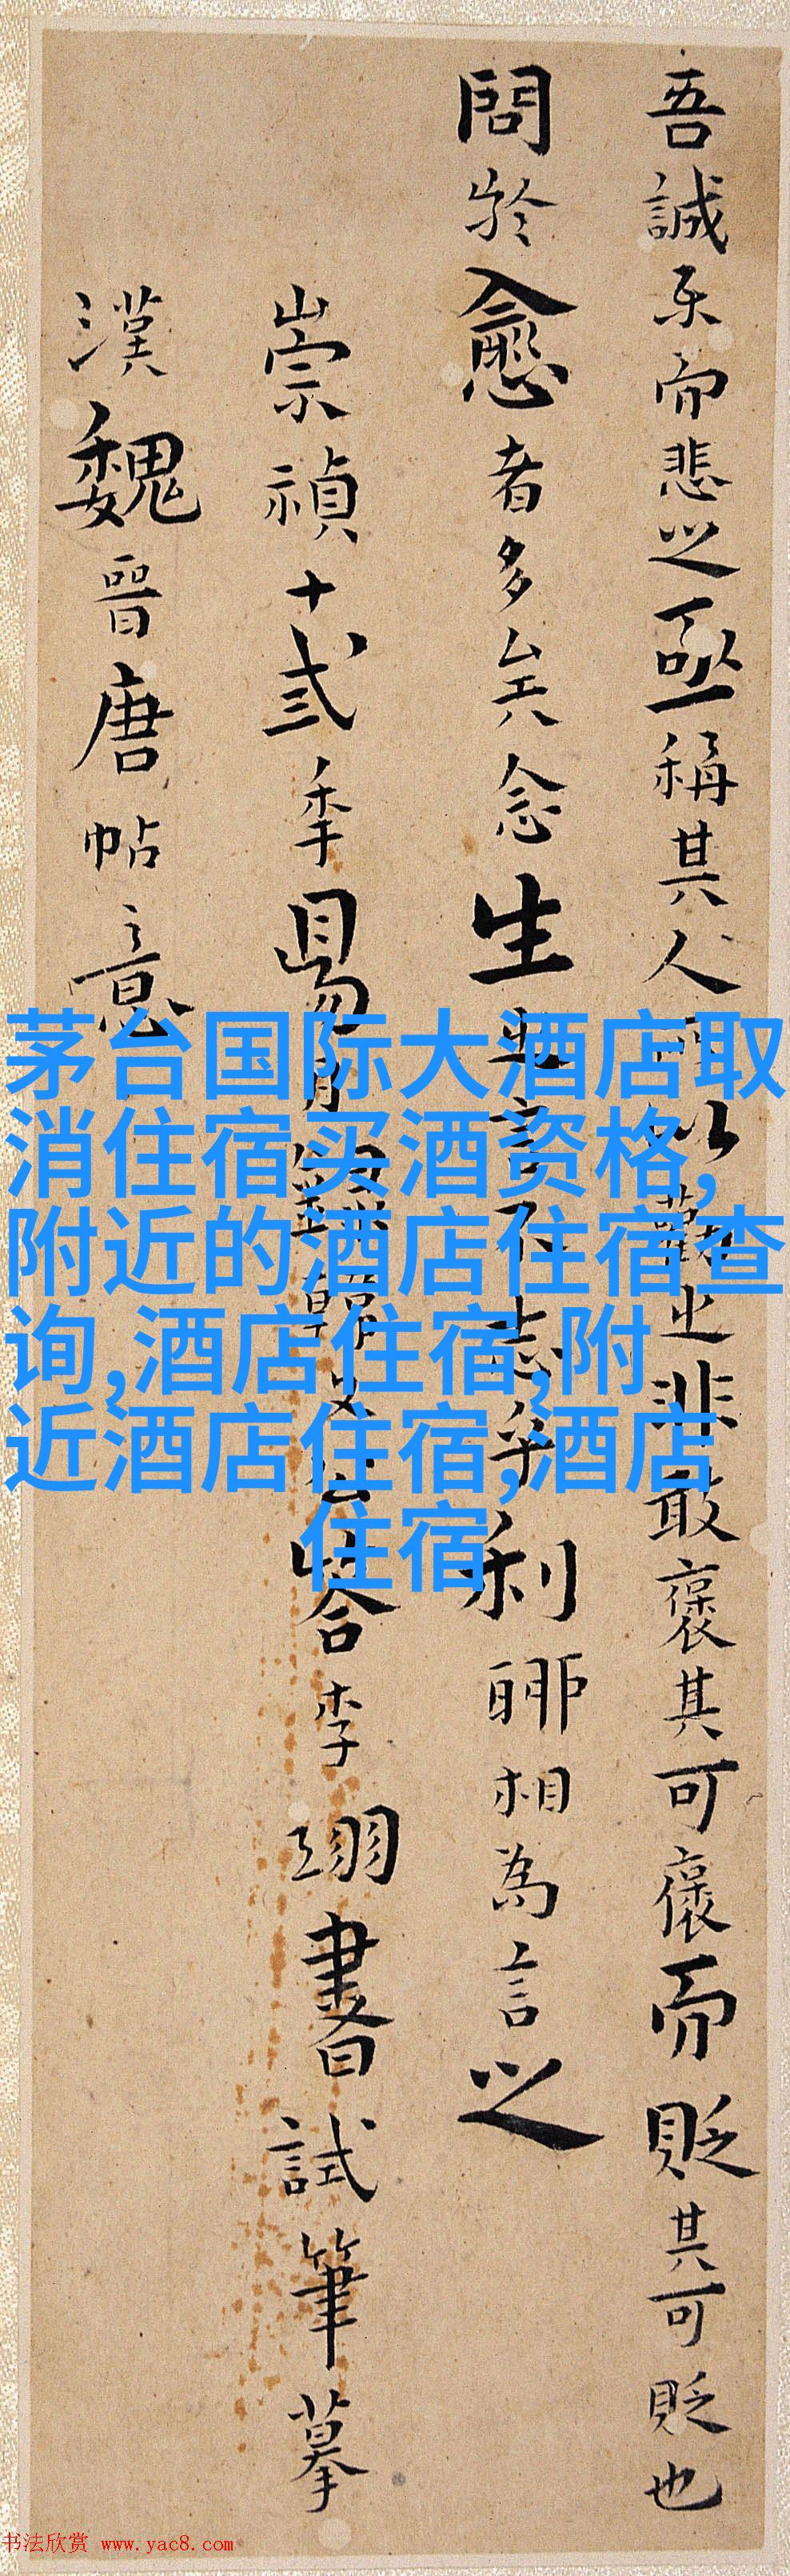 吾誠樂而悲之亟稱其人可以勸也非敢褒其可褒而貶其可貶也
問於愈者多矣念生之言不志乎利聊相為言之
崇禎十弎季易月錄韓文公答李翊書試筆摹
漢魏晉唐帖意
茅台国际大酒店取
消住宿买酒资格,
附近的酒店住宿查
询,酒店住宿,附
近酒店住宿,酒店
住宿
书法欣赏 www.yac8.com